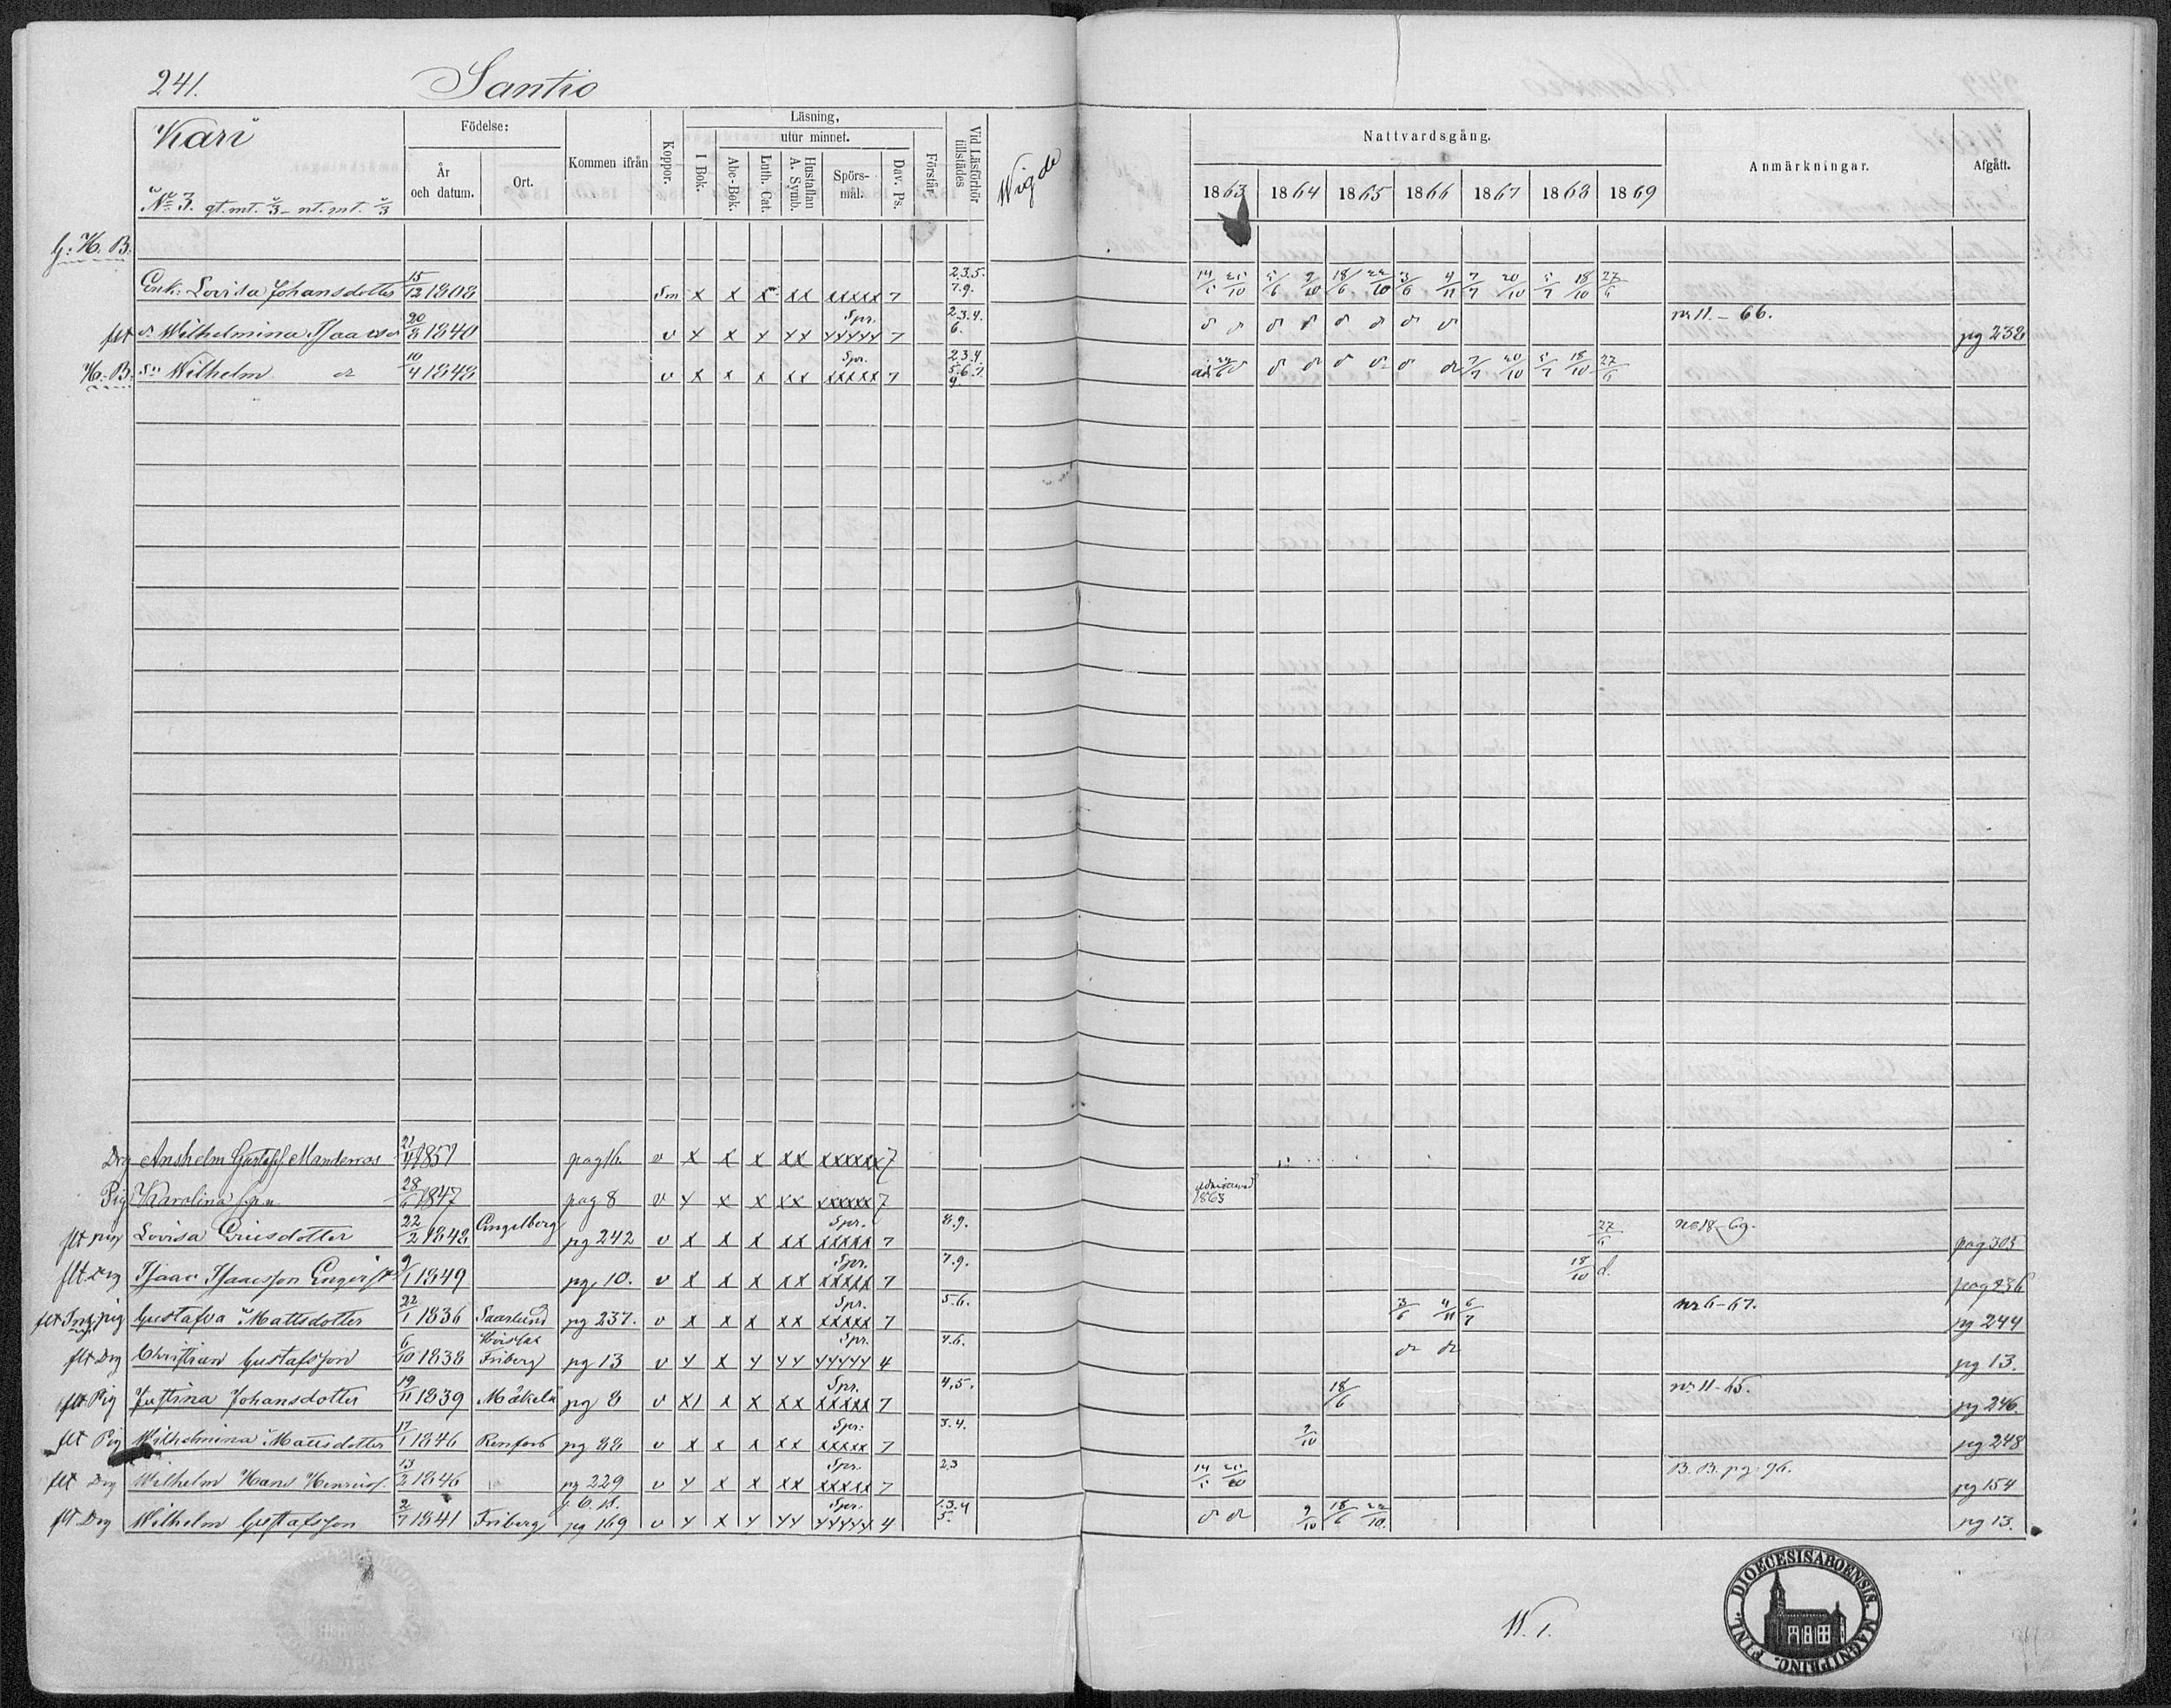 241. Santio
Kari
Födelse:
År och datum.
Ort.
Kommen ifrån
Koppor.
Läsning,
I Bok.
utur minnet.
Abc-Bok.
Luth. Cat.
Hustaflan A. Symb.
Spörs-mål.
Dav. Ps.
Förstår
Vid Läsförhör tillstädes
Wigde
Nattvardsgång.
1863 1864 1865 1866 1867 1868 1869
Anmärkningar.
Afgått.
No 3. gt. mt. 2/3 - nt. mt. 2/3
G. H. B.
Enk: Lovisa Johansdotter 15/12 1808 Sm x x x xx xxxxx 7 2.3.5. 7.9. 5/6 9/10 18/6 22/10 3/6 4/11 7/7 20/10 5/7 18/10 27/6
flt dr Wilhelmina Isaacsdr 20/8 1840 v x x x xx Spr. xxxxx 7 2.3.4. 6. nr 11. - 66. pg 238
H. B. sn Wilhelm dr 10/4 1848 v x x x xx Spr. xxxxx 7 2.3.4. 5.6.7. 9 7/7 20/10 5/7 18/10 27/6
Drg Anshelm Gustafsf. Mandernas 21/4 1851 pag 16 v x x x xx xxxxxx 7
Pig Karolina 28/6 1847 pag 8 v x x x xx xxxxx 7 admitterad 1863
flt pig Lovisa Ericsdotter 22/2 1848 Engelberg pg 242 v x x x xx Spr. xxxxx 7 8.9. 27/6 no 18-69. pag 303
flt Drg Isaac Isaacsson 9/1 1849 pg. 10. v x x x xx Spr. xxxxx 7 7.9. 18/10 d. pag 236
flt Inh. pig Gustafva Mattsdotter 22/1 1836 Saarlund pg 237. v x x x xx Spr. xxxxx 7 5.6. 3/6 4/11 6/7 nr 6-67. pg 244
flt Drg Christian Gustafsson 6/10 1838 Friberg pg 13 v x x x xx Spr. xxxxx 4 4.6. pg 13.
flt Pig Justina Johansdotter 19/11 1839 Mäkelä pg 8 v x x x xx Spr. xxxxx 7 4,5. 18/6 nr 11-65. pg 246.
flt Pig Wilhelmina Mattsdotter 17/1 1846 Renfors pg 88 v x x x xx Spr. xxxxx 7 3.4. 9/10 pg 248
flt Drg Wilhelm Hans Henricsf. 13/2 1846 pg 229 v x x x xx Spr. xxxxx 7 2.3 B. B. pg. 96. pg 154
flt Drg Wilhelm Gustafsson 2/7 1841 Friberg pg 169 v x x x xx Spr. xxxxx 4 1.3.4 5. 9/10 18/6 22/10. pg 13.
DIOECESIS ABOENSIS. MAGNI PRINC. FINL.